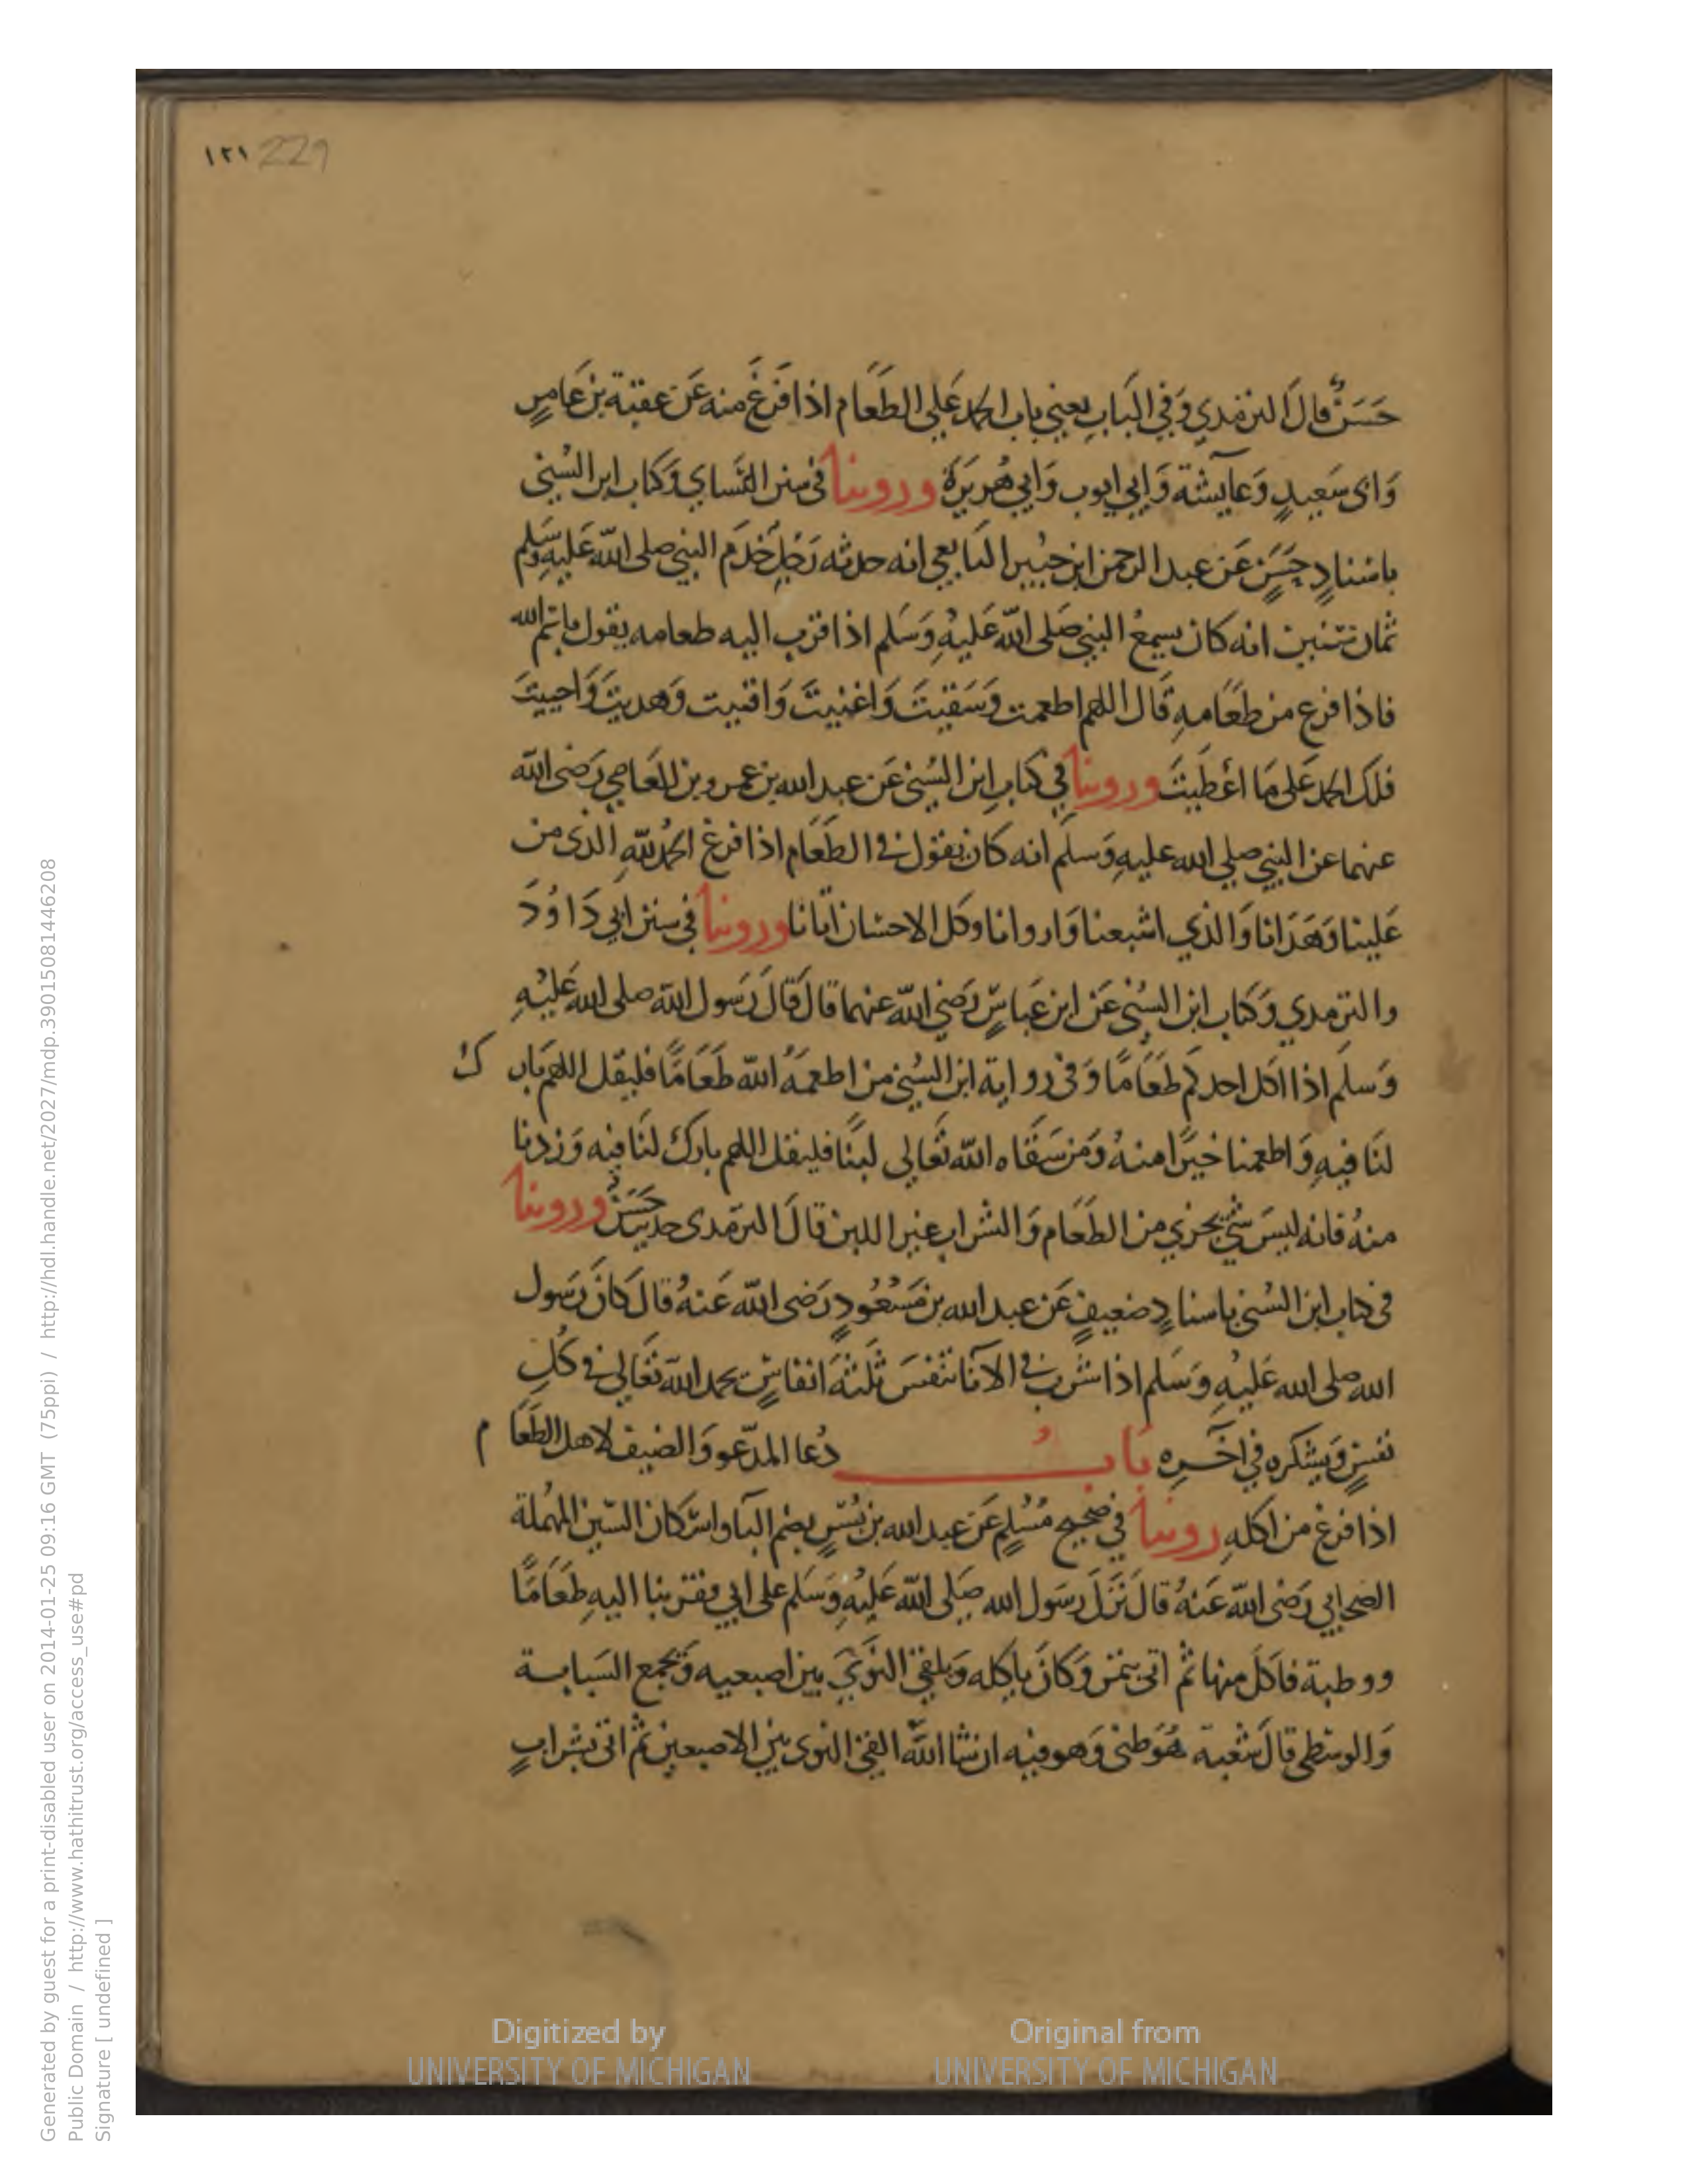 ١٢١ 229
حَسَنٌ قالَ الترمذي وَفي البَابِ يعني باب الحمد عَلي الطَعَام اذا فَرَغَ منه عَن عقبة بن عَامرٍ
وَابى سَعيدٍ وَعآيشة وَابي ايوب وَابي هُريَرَة وروينا فى سنن النَساي وَكتاب ابن السُني
باسْنادٍ حَسَنٍ عَن عبد الرحمن ابن جبُير التَابعي انه حدثه رَجل خَدَم النبي صلى اللّه عَليهِ وَسَلم
ثمان سنين انه كان يسمعُ النبي صَلى اللّه عَليهِ وَسَلم اذا قرب اليه طعامه يقول باسم الله
فاذا فرغ من طَعَامهِ قَال اللهم اطعمت وَسَقيتَ وَاغنيتَ وَاقنيت وَهديتَ وَاحييتَ
فلَك الحمد عَلى مَا اعْطَيتَ وروينا في كتابِ ابن السُني عَن عبد الله بن عمرو بن العَاصي رَضى اللّه
عنهما عن النبي صلي الله عليهِ وَسلم انه كان يقول في الطَعَام اذا فرغ الحمدُ للّهِ الذى من
عَلينا وَهَدَانا وَالذي اشبعنا وَاروانا وكل الاحسَان اتانا وروينا فى سنن ابي دَاوُدَ
والترمدي وَكتاب ابن السُني عَن ابن عَباسٍ رَضي اللّه عنهما قال قَالَ رَسول اللّه صلى الله عَليْهِ
وَسلم اذا اكل احدكم طَعَامًا وَفى رواية ابن السُني من اطعمَهُ اللّه طَعَامًا فليقل اللهم بَار ك
لنَا فيهِ وَاطعمنا خيرًا منهُ وَمَن سَقَاه اللّه تَعَالى لبنًا فليقل اللهم بارك لنَا فيه وَزدنا
منهُ فانه ليسَ شي يجزي من الطعَام وَالشراب غير اللبن قالَ الترمدى حديث حَسَنٌ وروينا
فى كتاب ابن السُني باسنادٍ ضعيفٍ عَن عبد الله بن مَسْعُودٍ رَضى اللّه عَنهُ قال كانَ رَسول
الله صلى الله عَليْهِ وَسَلم اذا شرب في الآنا تنفسَ ثَلثَة انفاسٍ يحمد اللّه تَعَالى في كُلِ
نفسٍ وَيشكره في اخَرِه بَابُ دُعا المدعو وَالضيف لاهل الطَعَا م
اذا فرغ من اكلهِ روينا في صحيح مُسْلمٍ عَن عبد الله بن بُسْرٍ بضم البَا واسْكان السّين المهُملة
الصحابي رَضى اللّه عَنهُ قالَ نَزَلَ رَسول الله صَلى اللّه عَليْهِ وَسَلم على ابي فقربنا اليهِ طعَامًا
ووطبة فاكَل منها ثم اتى بتمر وَكانَ ياكله وَيلقي النَوي بين اصبعيه وَيجمع السَبابة
وَالوسْطى قالَ شعبة هُوَ ظنى وَهو فيه ان شا اللّه القي النوى بين الاصبعين ثم اتى بشرابٍ
Digitized by
UNIVERSITY OF MICHIGAN
Original from
UNIVERSITY OF MICHIGAN
Generated by guest for a print-disabled user on 2014-01-25 09:16 GMT (75ppi) / http://hdl.handle.net/2027/mdp.39015081446208
Public Domain / http://www.hathitrust.org/access_use#pd
Signature [ undefined ]